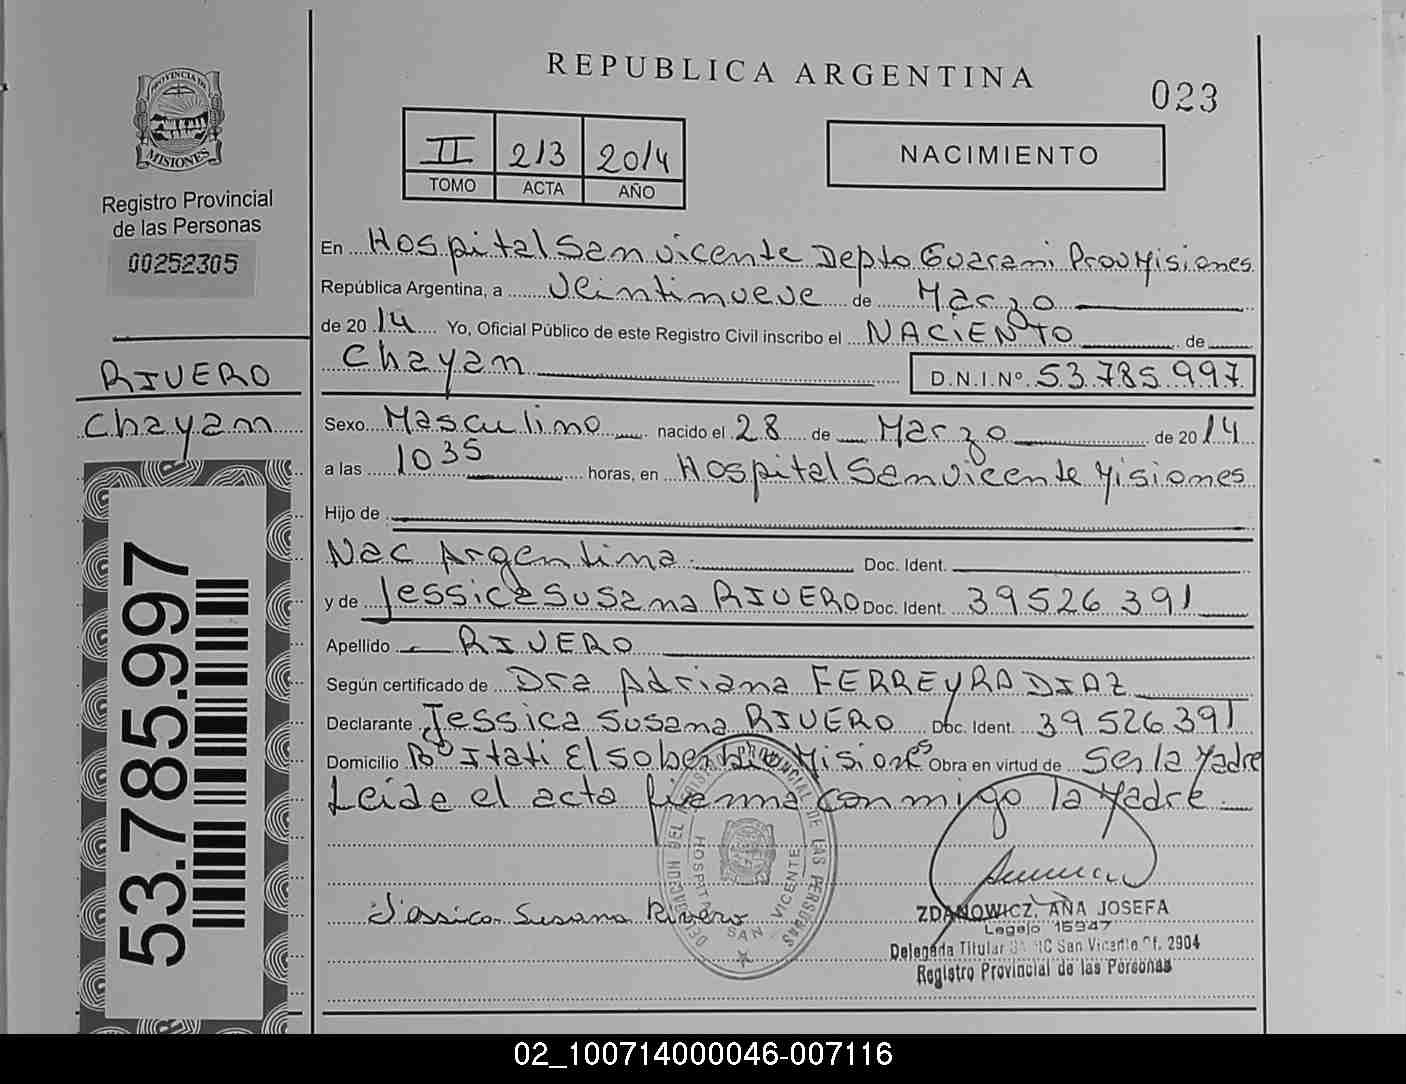 REPUBLICA ARGENTINA
023
PROVINCIA DE
MISIONES
Registro Provincial
de las Personas
00252305
II 213 2014
TOMO ACTA AÑO
NACIMIENTO
En Hospital San Vicente Depto Guarani Prov Misiones
República Argentina, a veintinueve de Marzo
de 2014 Yo, Oficial Público de este Registro Civil inscribo el NACIENTO de
Chayan D.N.I.Nº 53.785.997
RIVERO
Chayan
Sexo Masculino nacido el 28 de Marzo de 2014
a las 1035 horas, en Hospital San Vicente Misiones
Hijo de
Nac Argentina Doc. Ident.
y de Jessica Susana RIVERO Doc. Ident. 39526391
Apellido RIVERO
Según certificado de Dra Adriana FERREYRA DIAZ
Declarante Jessica Susana RIVERO Doc. Ident. 39526391
Domicilio Bº Itati El soberbio Misiones Obra en virtud de Ser la Madre
Leida el acta firma conmigo la Madre
Jessica Susana Rivero
DELEGACION DEL REGISTRO PROVINCIAL DE LAS PERSONAS
HOSPITAL SAN VICENTE
ZDANOWICZ, ANA JOSEFA
Legajo 15947
Delegada Titular San Vicente Of. 2904
Registro Provincial de las Personas
53.785.997
02_100714000046-007116